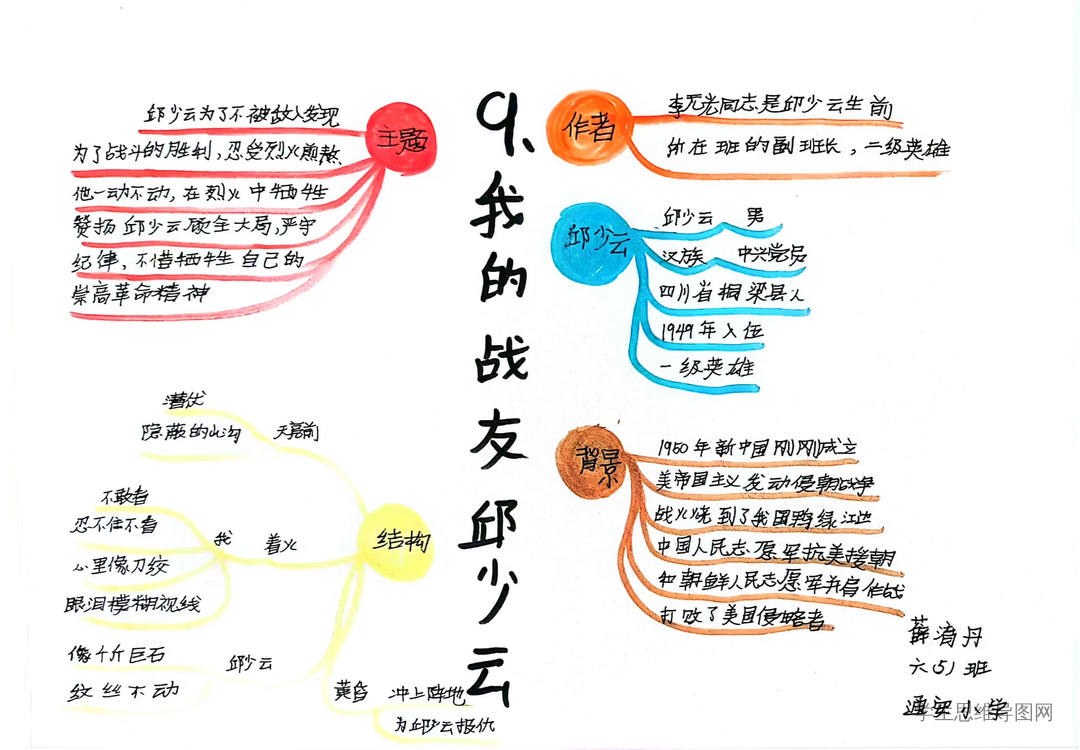 9、我的战友邱少云
主题
邱少云为了不被敌人发现
为了战斗的胜利，忍受烈火煎熬
他一动不动，在烈火中牺牲
赞扬邱少云顾全大局，严守
纪律、不惜牺牲自己的
崇高革命精神
作者
李元光同志是邱少云生前
所在班的副班长，二级英雄
邱少云
邱少云 男
汉族 中共党员
四川省铜梁县人
1949年入伍
一级英雄
背景
1950年新中国刚刚成立
美帝国主义发动侵朝战争
战火烧到了我国鸭绿江边
中国人民志愿军抗美援朝
和朝鲜人民志愿军并肩作战
打败了美国侵略者
结构
天亮前
潜伏
隐蔽的山沟
着火
我
不敢看
忍不住不看
心里像刀绞
眼泪模糊视线
邱少云
像千斤巨石
纹丝不动
黄昏
冲上阵地
为邱少云报仇
丹
六(5)班
小学
学生思维导图网